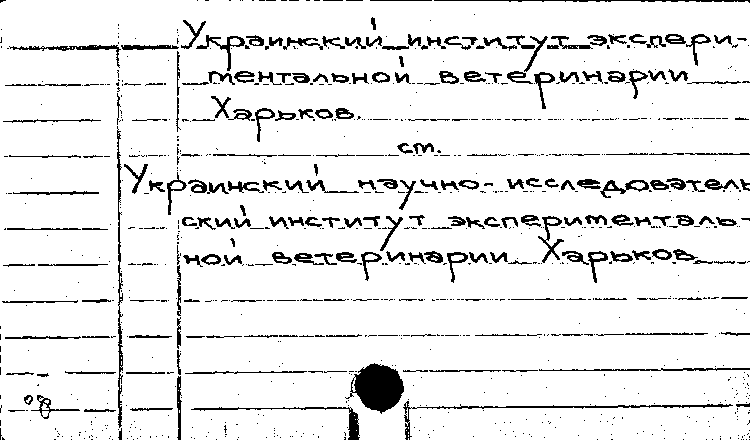 Украинский институт экспери-
ментальной ветеринарии
Харьков.
ст.
Украинский научно-исследователь
ский институт эксперименталь-
ной ветеринарии Харьков